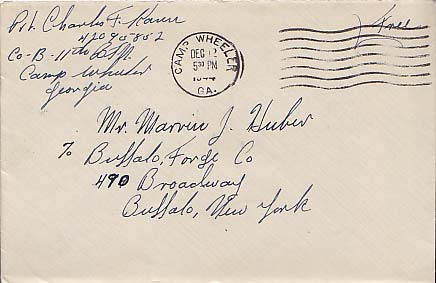 Pvt. Charles F.
42095852
Co-B-11th Bn.
Camp Wheeler
Georgia
CAMP WHEELER
DEC 12
5 30 PM
1944
GA.
Free
Mr. Marvin J. Huber
To Buffalo Forge Co
490 Broadway
Buffalo, New York